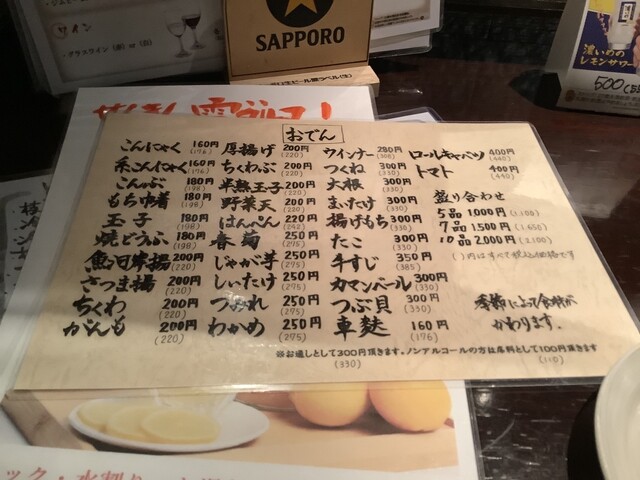 ワイン
・グラスワイン(赤) or (白)
SAPPORO
濃いめの
レモンサワー
500
おでん
こんにゃく 160円 (176)
糸こんにゃく 160円 (176)
こんぶ 180円 (198)
もち巾着 180円 (198)
玉子 180円 (198)
焼どうふ 180円 (198)
魚河岸揚 200円 (220)
さつま揚 200円 (220)
ちくわ 200円 (220)
がんも 200円 (220)
厚揚げ 200円 (220)
ちくわぶ 200円 (220)
半熟玉子 200円 (220)
野菜天 200円 (220)
はんぺん 220円 (242)
春菊 250円 (275)
じゃが芋 250円 (275)
しいたけ 250円 (275)
つみれ 250円 (275)
わかめ 250円 (275)
ウインナー 280円 (308)
つくね 300円 (330)
大根 300円 (330)
まいたけ 300円 (330)
揚げもち 300円 (330)
たこ 300円 (330)
牛すじ 350円 (385)
カマンベール 300円 (330)
つぶ貝 300円 (330)
車麩 160円 (176)
ロールキャベツ 400円 (440)
トマト 400円 (440)
盛り合わせ
5品 1,000円 (1,100)
7品 1,500円 (1,650)
10品 2,000円 (2,100)
( )内はすべて税込価格です
季節によって食材が
かわります。
※お通しとして300円頂きます。ノンアルコールの方は席料として100円頂きます
(330) (110)